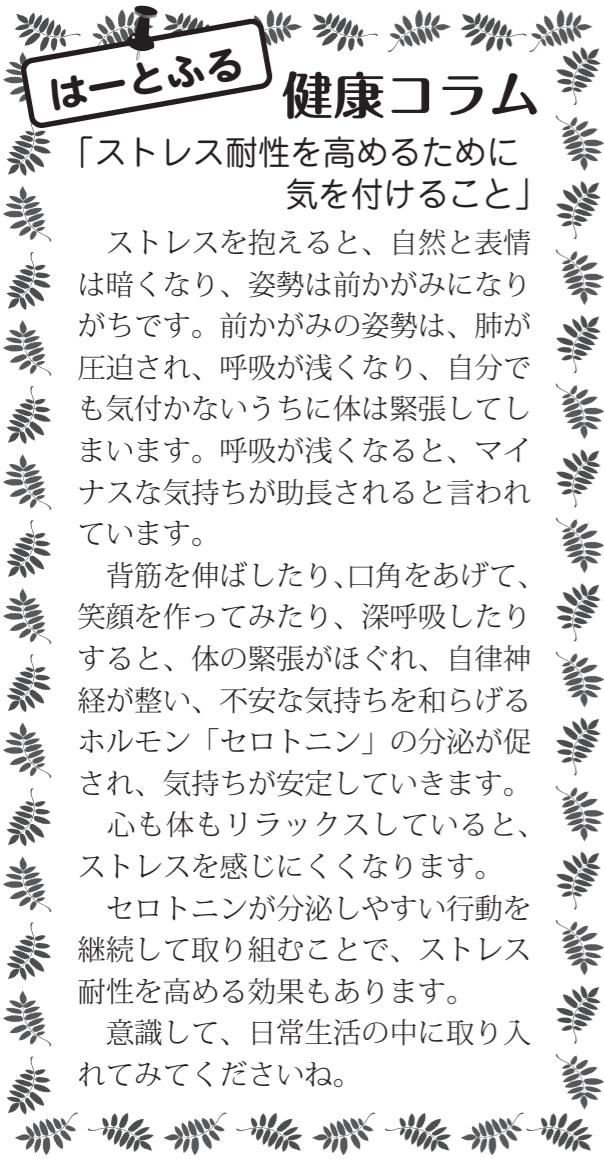 はーとふる
健康コラム
「ストレス耐性を高めるために
気を付けること」
　ストレスを抱えると、自然と表情
は暗くなり、姿勢は前かがみになり
がちです。前かがみの姿勢は、肺が
圧迫され、呼吸が浅くなり、自分で
も気付かないうちに体は緊張してし
まいます。呼吸が浅くなると、マイ
ナスな気持ちが助長されると言われ
ています。
　背筋を伸ばしたり、口角をあげて、
笑顔を作ってみたり、深呼吸したり
すると、体の緊張がほぐれ、自律神
経が整い、不安な気持ちを和らげる
ホルモン「セロトニン」の分泌が促
され、気持ちが安定していきます。
　心も体もリラックスしていると、
ストレスを感じにくくなります。
　セロトニンが分泌しやすい行動を
継続して取り組むことで、ストレス
耐性を高める効果もあります。
　意識して、日常生活の中に取り入
れてみてくださいね。